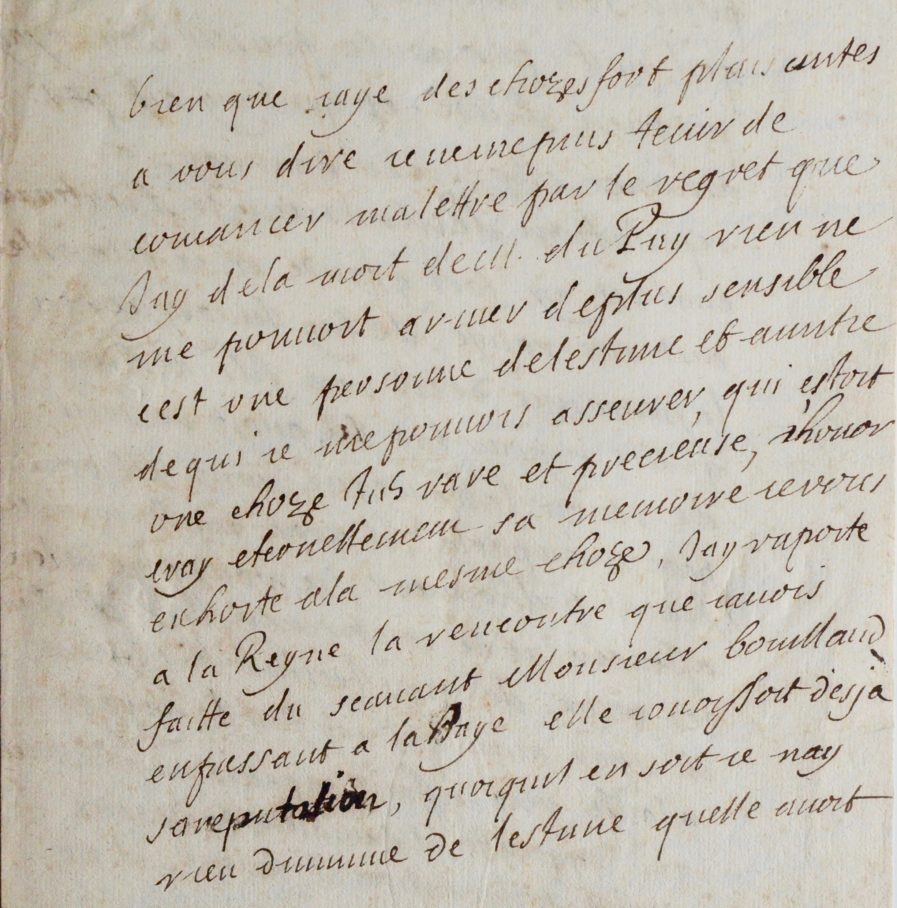 bien que iaye des chozes fort plaisantes
a vous dire ie ne me puis tenir de
comancer ma lettre par le regret que
Jay de la mort de M. du Puy rien ne
me pouvoit ariver de plus sensible
cest une personne de lestime et
de qui ie me pouvois asseurer, qui estoit
une choze rare et precieuse, ihonor
eray eternellement sa memoire ie vous
exhorte a la mesme choze, Jay raporte
a la Reyne la rencontre que iavois
faitte du scavant Monsieur bouillaud
en passant a la Haye elle conoissoit desja
sa reputation, quoiquil en soit ie nay
rien diminue de lestime quelle avoit